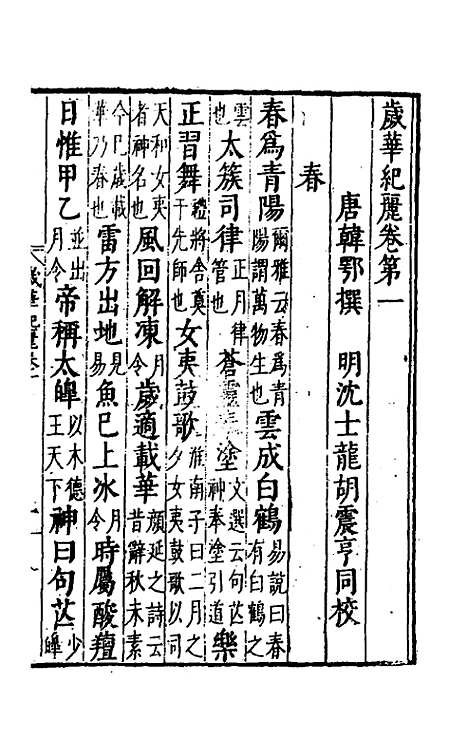 歲華紀麗卷第一
唐韓鄂撰　明沈士龍胡震亨同校
春
春爲青陽爾雅云春爲青陽謂萬物生也雲成白鶴易說曰春有白鶴之
雲也太簇司律正月律管也蒼靈奉塗文選云句芒神奉塗引道樂
正習舞禮將舍奠于先師也女夷鼓歌淮南子曰二月之夕女夷鼓歌以司
天和女夷者神名也風回解凍月令歲適載華顏延之詩云昔辭秋未素
今已歲載華乃春也雷方出地見易魚已上冰月令時屬酸羶
日惟甲乙並出月令帝稱太皥以木德王天下神曰句芒少皥
歲華紀麗卷一